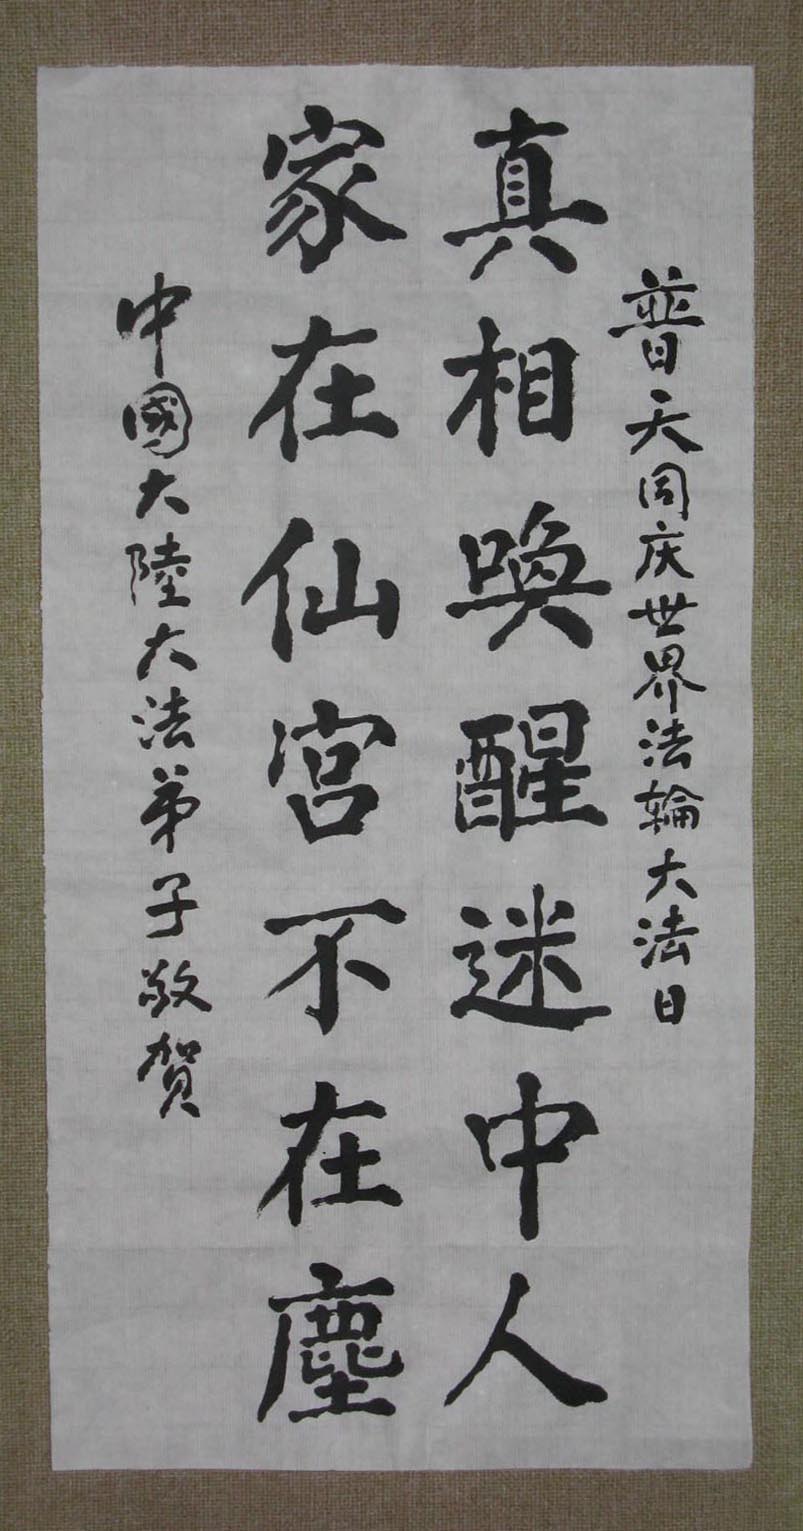 普天同庆世界法輪大法日
真相唤醒迷中人
家在仙宫不在塵
中國大陸大法弟子敬贺